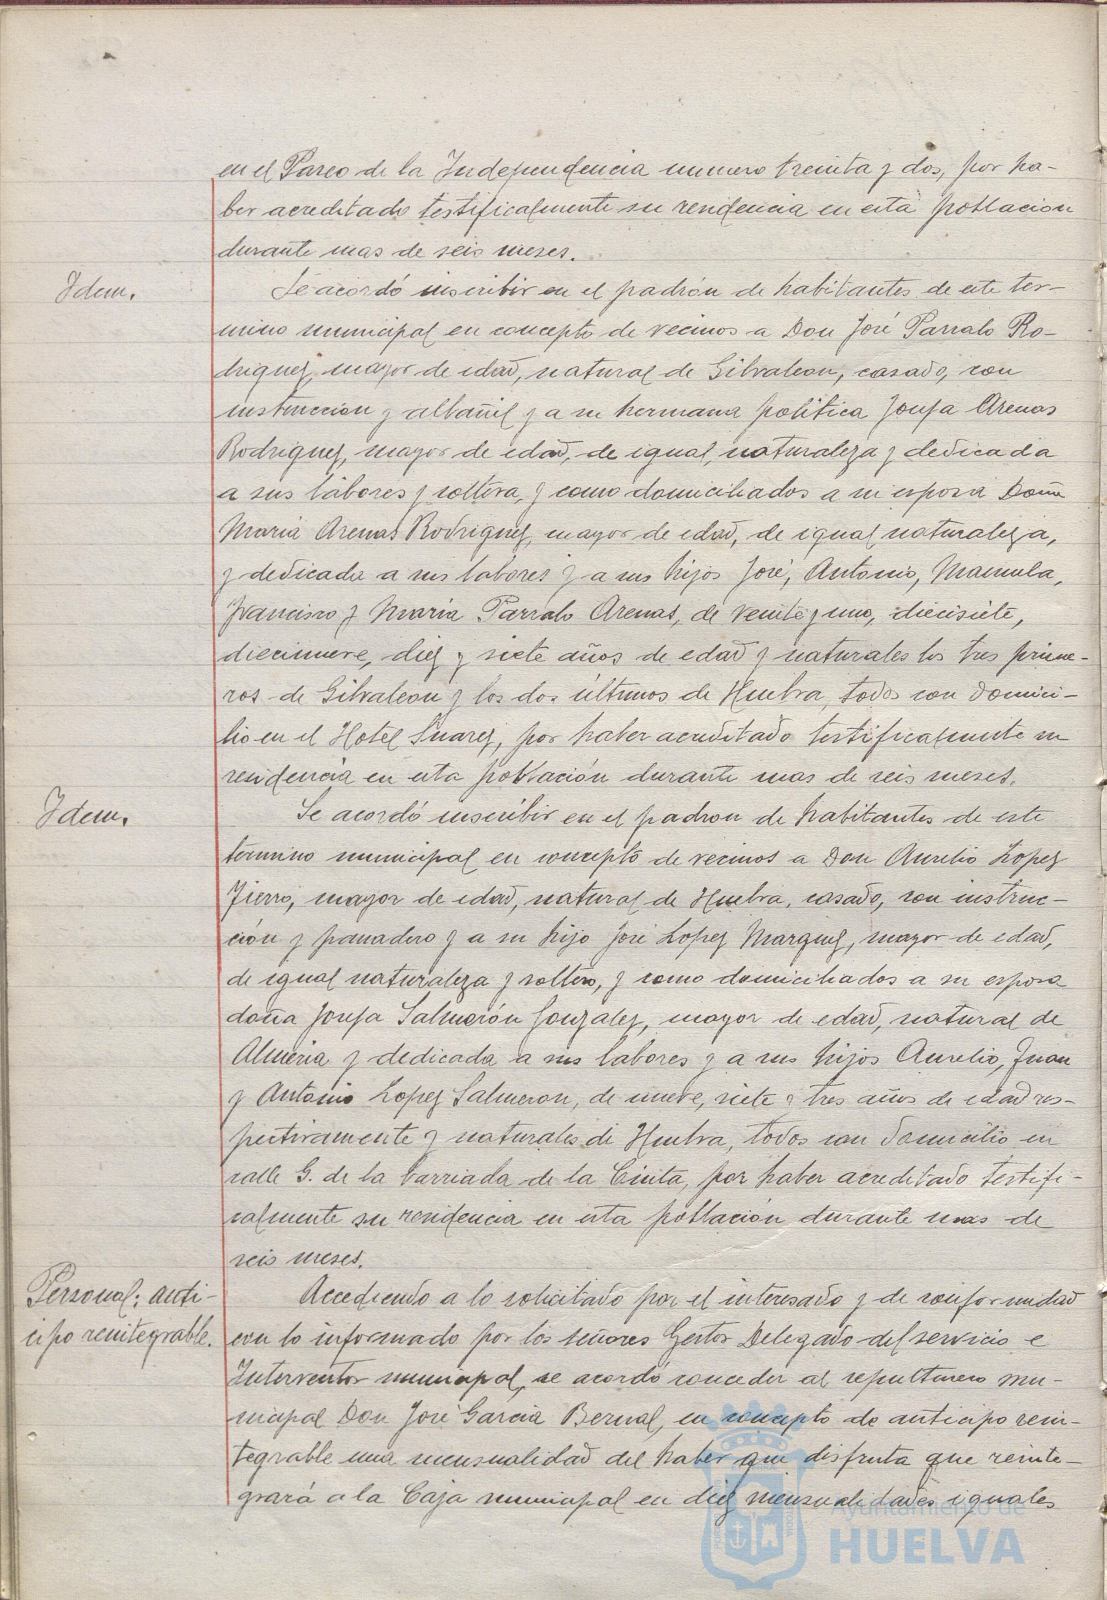 en el Paseo de la Independencia numero treinta y dos, por ha-
ber acreditado testificalmente su residencia en esta poblacion
durante mas de seis meses.
Idem.
Se acordó inscribir en el padrón de habitantes de este ter-
mino municipal en concepto de vecinos a Don José Parralo Ro-
driguez, mayor de edad, natural de Gibraleon, casado, con
instruccion y albañil y a su hermana politica Josefa Arenas
Rodriguez, mayor de edad, de igual naturaleza y dedicada
a sus labores y soltera, y como domiciliados a su esposa Doña
Maria Arenas Rodriguez, mayor de edad, de igual naturaleza,
y dedicada a sus labores y a sus hijos José, Antonio, Manuela,
Francisco y Maria Parralo Arenas, de veinte y uno, diecisiete,
diecinueve, diez y siete años de edad y naturales los tres prime-
ros de Gibraleon y los dos últimos de Huelva, todos con domici-
lio en el Hotel Suarez, por haber acreditado testificalmente su
residencia en esta población durante mas de seis meses.
Idem.
Se acordó inscribir en el padron de habitantes de este
termino municipal en concepto de vecinos a Don Aurelio Lopez
Fierro, mayor de edad, natural de Huelva, casado, con instruc-
ción y panadero y a su hijo José Lopez Marquez, mayor de edad,
de igual naturaleza y soltero, y como domiciliados a su esposa
doña Josefa Salmerón Gonzalez, mayor de edad, natural de
Almeria y dedicada a sus labores y a sus hijos Aurelio, Juan
y Antonio Lopez Salmeron, de nueve, siete y tres años de edad res-
pectivamente y naturales de Huelva, todos con domicilio en
calle G. de la barriada de la Cinta, por haber acreditado testifi-
calmente su residencia en esta poblacion durante mas de
seis meses.
Personal; anti-
cipo reintegrable.
Accediendo a lo solicitado por el interesado y de conformidad
con lo informado por los señores Gestor Delegado del servicio e
Interventor municipal, se acordó conceder al sepulturero mu-
nicipal Don José Garcia Bernal, en concepto de anticipo rein-
tegrable una mensualidad del haber que disfruta que reinte-
grará a la Caja municipal en diez mensualidades iguales
Ayuntamiento de
HUELVA